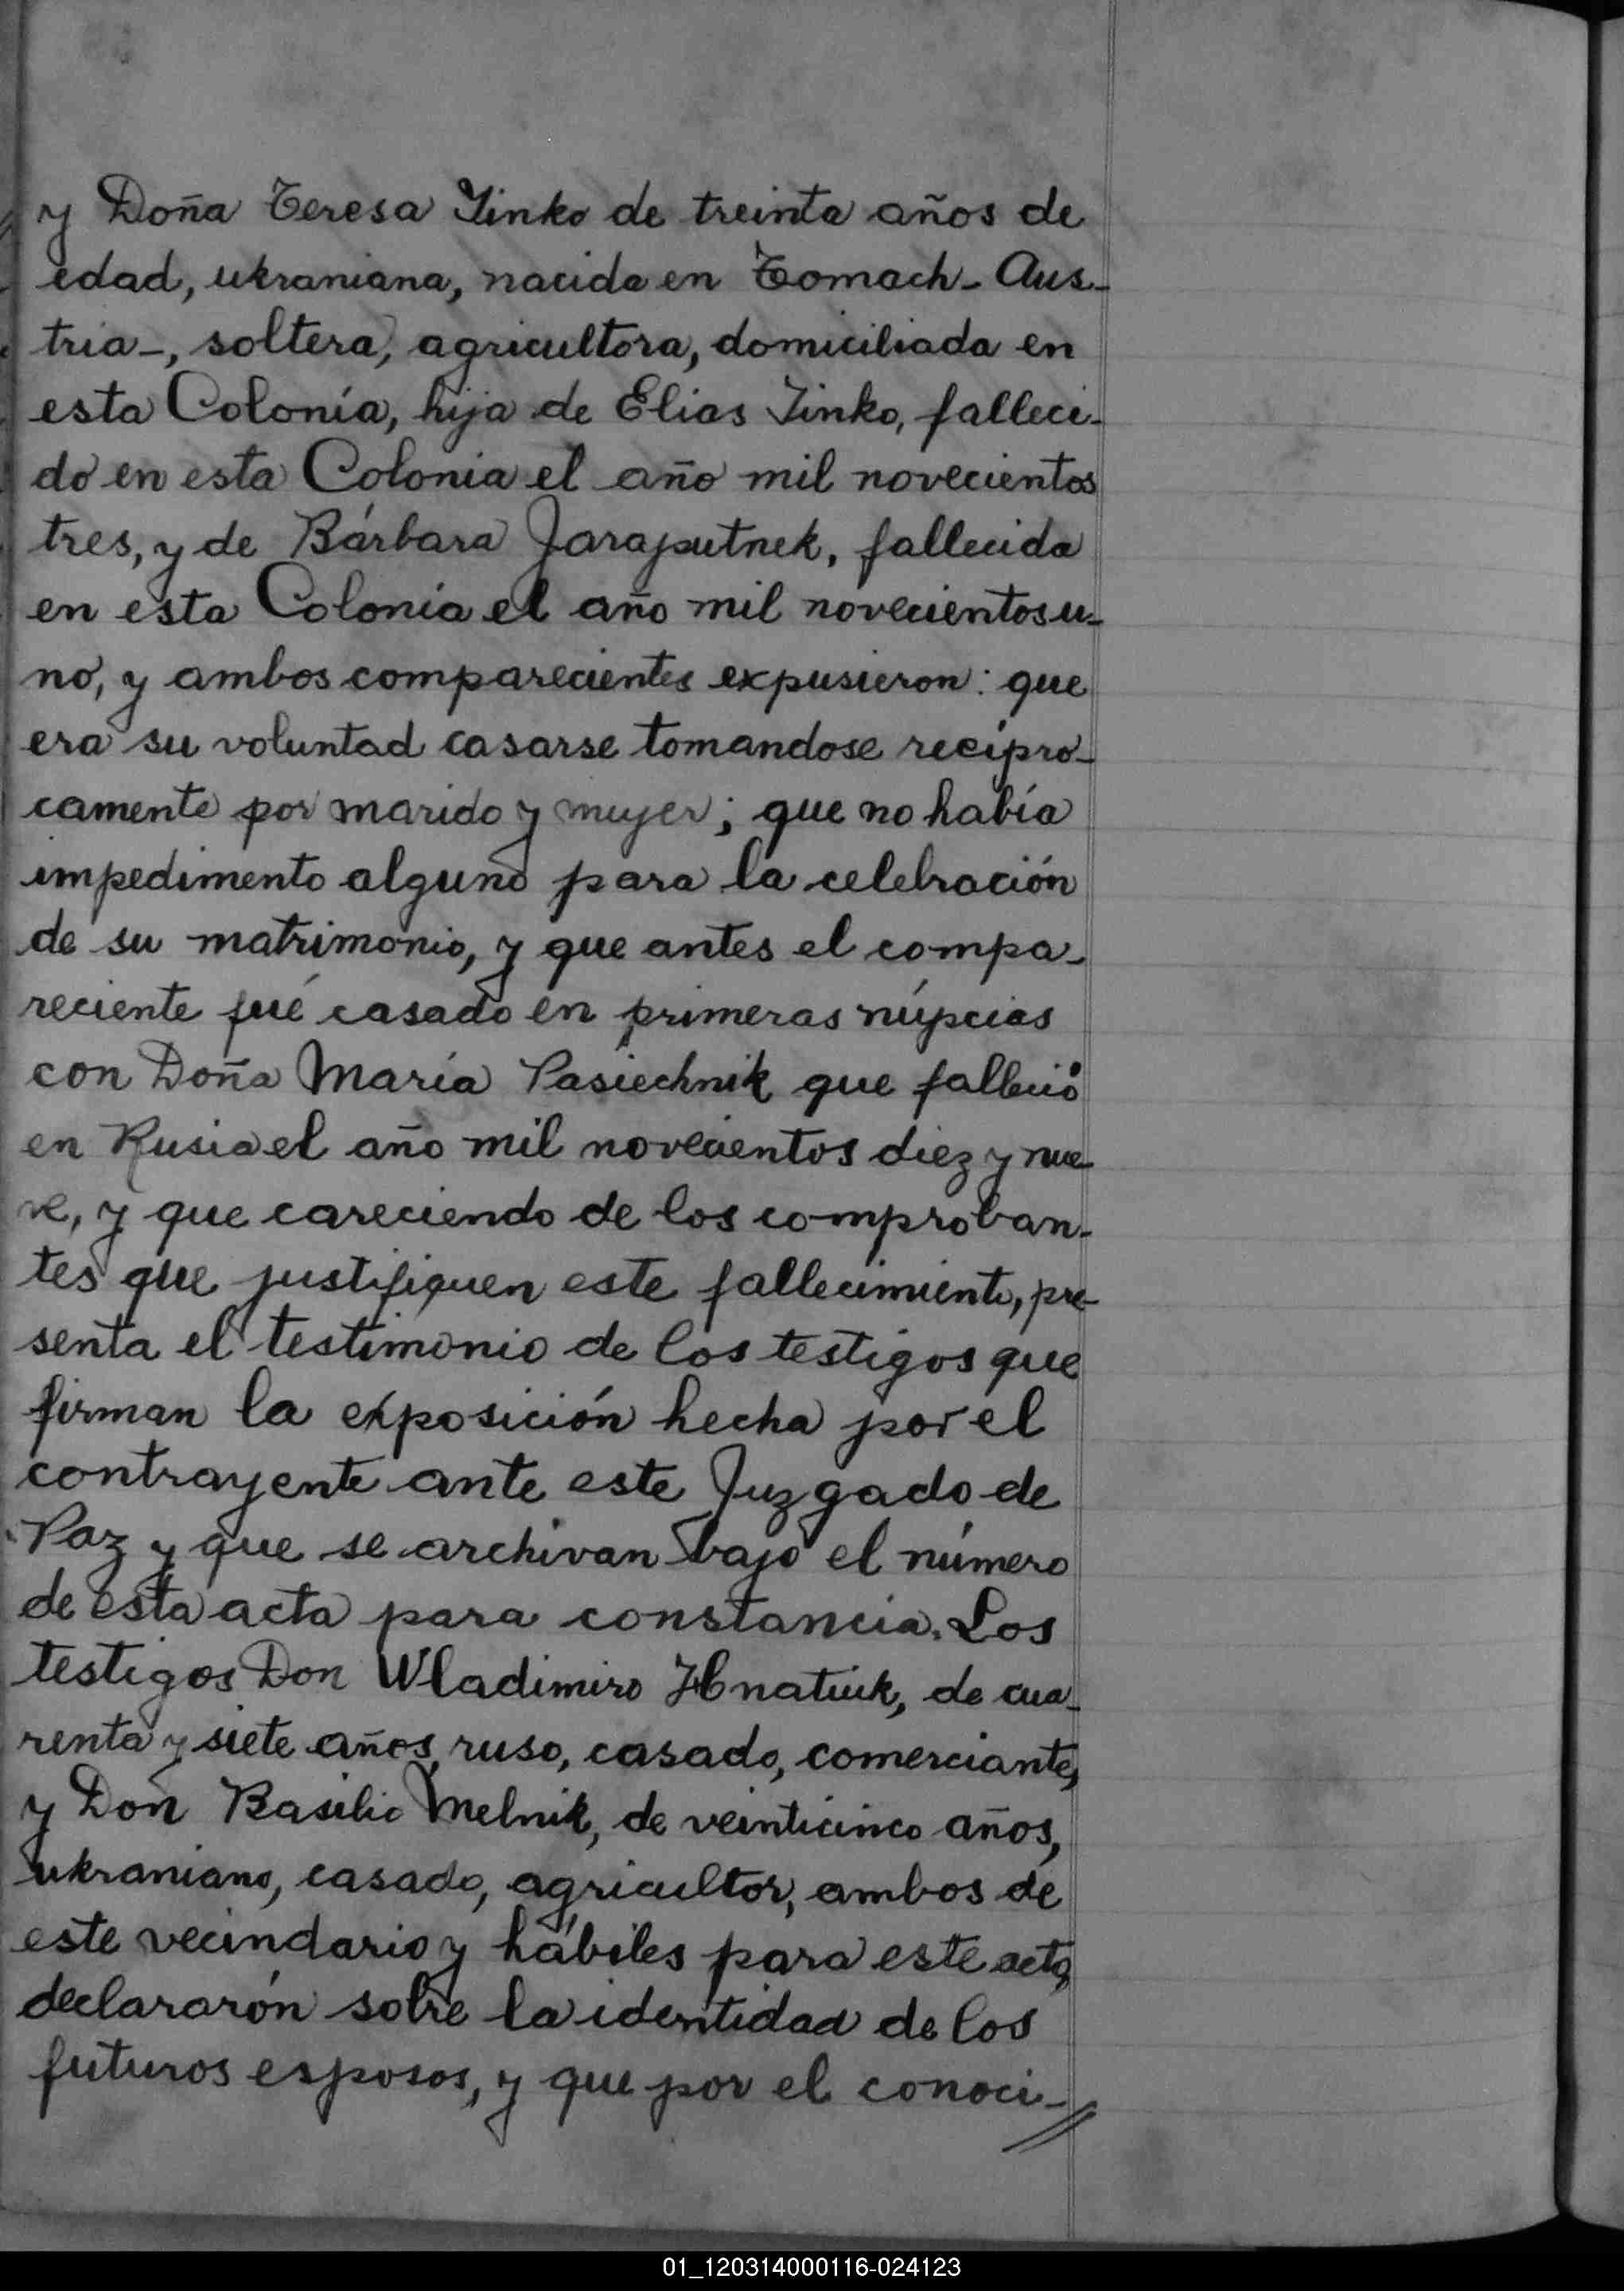 y Doña Teresa Jinko de treinta años de
edad, ukraniana, nacida en Tomach- Aus-
tria-, soltera, agricultora, domiciliada en
esta Colonía, hija de Elias Jinko, falleci-
do en esta Colonia el año mil novecientos
tres, y de Bárbara Jaraputnek, fallecida
en esta Colonia el año mil novecientos u-
no, y ambos comparecientes expusieron: que
era su voluntad casarse tomandose recípro-
camente por marido y mujer; que no había
impedimento alguno para la celebración
de su matrimonio, y que antes el compa-
reciente fué casado en primeras núpcias
con Doña María Pasiechnik que falleció
en Rusia el año mil novecientos diez y nue-
ve, y que careciendo de los comproban-
tes que justifiquen este fallecimiento, pre-
senta el testimonio de los testigos que
firman la exposición hecha por el
contrayente ante este Juzgado de
Paz y que se archivan bajo el número
de esta acta para constancia. Los
testigos Don Wladimiro Hnatiuk, de cua-
renta y siete años, ruso, casado, comerciante,
y Don Basilio Melnik, de veinticinco años,
ukraniano, casado, agricultor, ambos de
este vecindario y hábiles para este acto,
declararón sobre la identidad de los
futuros esposos, y que por el conoci-//
01_120314000116-024123